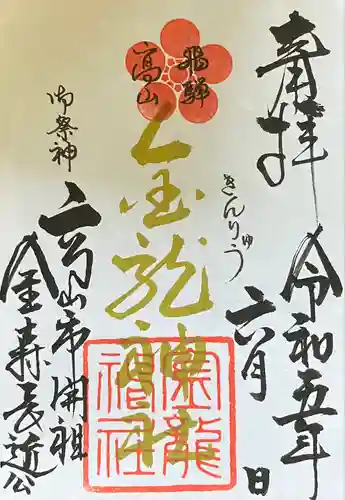 奉拝
令和五年
六月 日
飛騨
高山
きんりゅう
金龍神社
金龍
神社
御祭神
高山市開祖
金森長近公